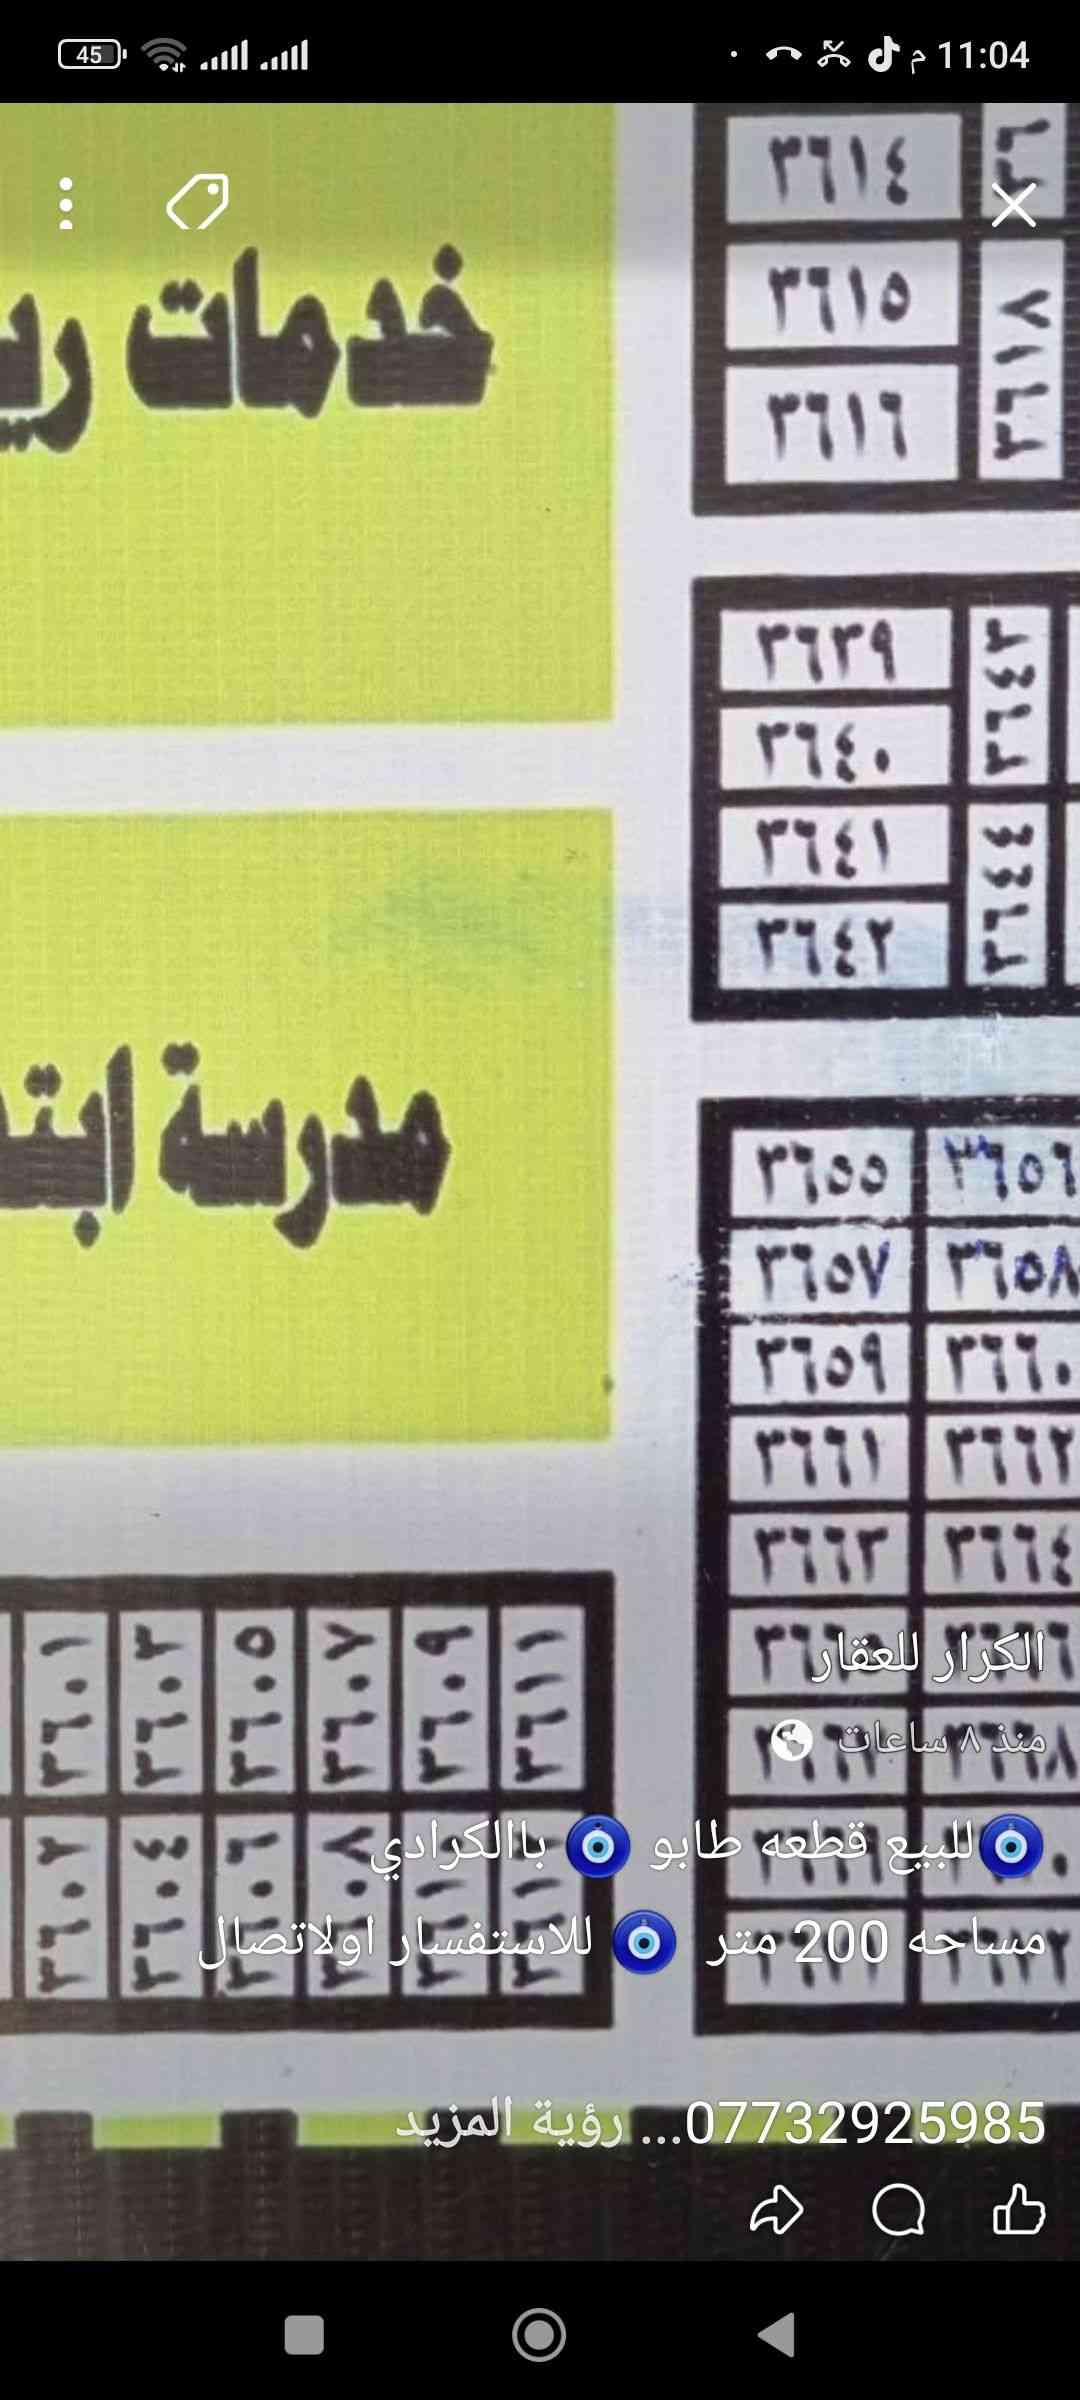 45
11:04 م
٣٦١٤
٣٦١٥
٣٦١٦
٣٦١٧
خدمات
٣٦٣٩
٣٦٤٠
٣٦٤١
٣٦٤٢
٣٦٤٣
٣٦٤٤
مدرسة
٣٦٥٥ ٣٦٥٦
٣٦٥٧ ٣٦٥٨
٣٦٥٩ ٣٦٦٠
٣٦٦١ ٣٦٦٢
٣٦٦٣ ٣٦٦٤
٣٦٠١ ٣٦٠٣ ٣٦٠٥ ٣٦٠٧ ٣٦٠٩ ٣٦١١
٣٦٠٢ ٣٦٠٤
الكرار للعقار
منذ ٨ ساعات
🧿للبيع قطعه طابو 🧿 باالكرادي
مساحه 200 متر 🧿 للاستفسار اولاتصال
07732925985... رؤية المزيد